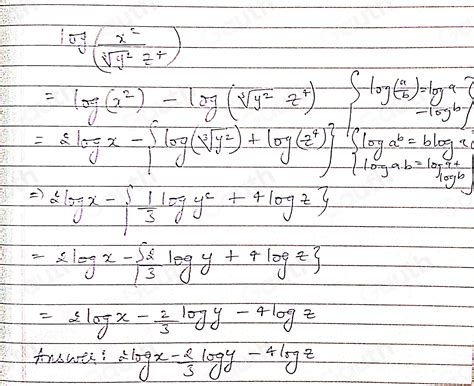 log(x²/(∛y² z⁴))
= log(x²) - log(∛y² z⁴) {log(a/b) = log a - log b}
= 2 log x - {log(∛y²) + log(z⁴)} {log aᵇ = b log a
log ab = log a + log b}
=> 2 log x - {1/3 log y² + 4 log z}
= 2 log x - {2/3 log y + 4 log z}
= 2 log x - 2/3 log y - 4 log z
Answer: 2 log x - 2/3 log y - 4 log z